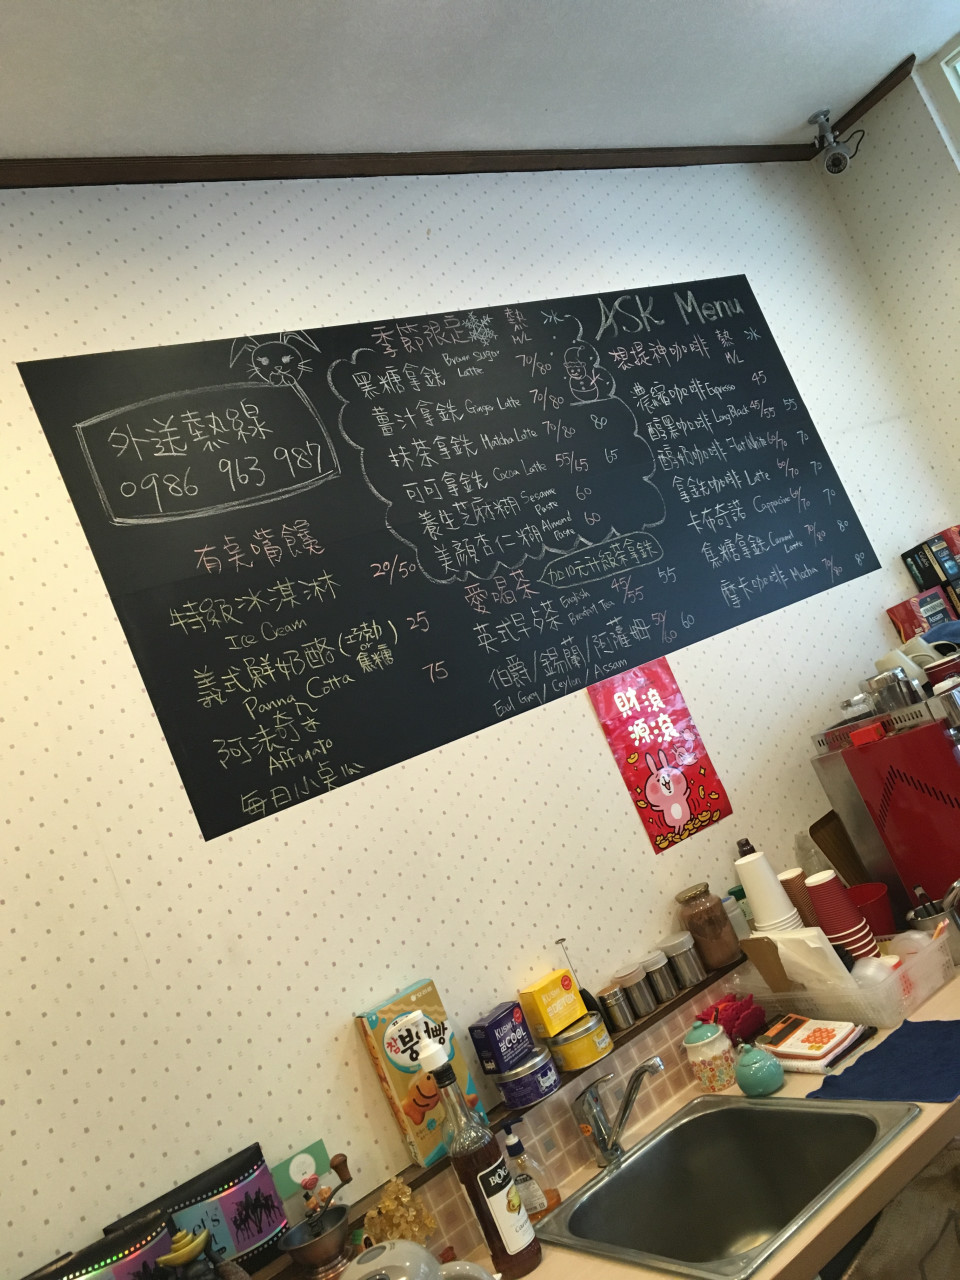 ASK Menu
想提神咖啡 熱 冰
M/L
濃縮咖啡 Espresso 45
醇黑咖啡 Long Black 45/55 55
醇奶咖啡 Flat White 60/70 70
拿鐵咖啡 Latte 60/70 70
卡布奇諾 Cappuccino 60/70 70
焦糖拿鐵 Caramel Latte 70/80 80
摩卡咖啡 Mocha 70/80 80
季節限定 熱 冰
M/L
黑糖拿鐵 Brown Sugar Latte 70/80
薑汁拿鐵 Ginger Latte 70/80
抹茶拿鐵 Matcha Latte 70/80 80
可可拿鐵 Cocoa Latte 55/65 65
養生芝麻糊 Sesame Paste 60
美顏杏仁糊 Almond Paste 60
愛喝茶 加10元升級茶拿鐵
英式早茶 English Breakfast Tea 45/55 55
伯爵/錫蘭/阿薩姆 50/60 60
Earl Grey / Ceylon / Assam
外送熱線
0986 963 987
有桌嘴饞
特級冰淇淋 20/50
Ice Cream
義式鮮奶酪 (巧克力 or 焦糖) 25
Panna Cotta
阿法奇朵 75
Affogato
每日小桌
財源
滾滾
참붕어빵
KUSMI
BE COOL
KUSMI